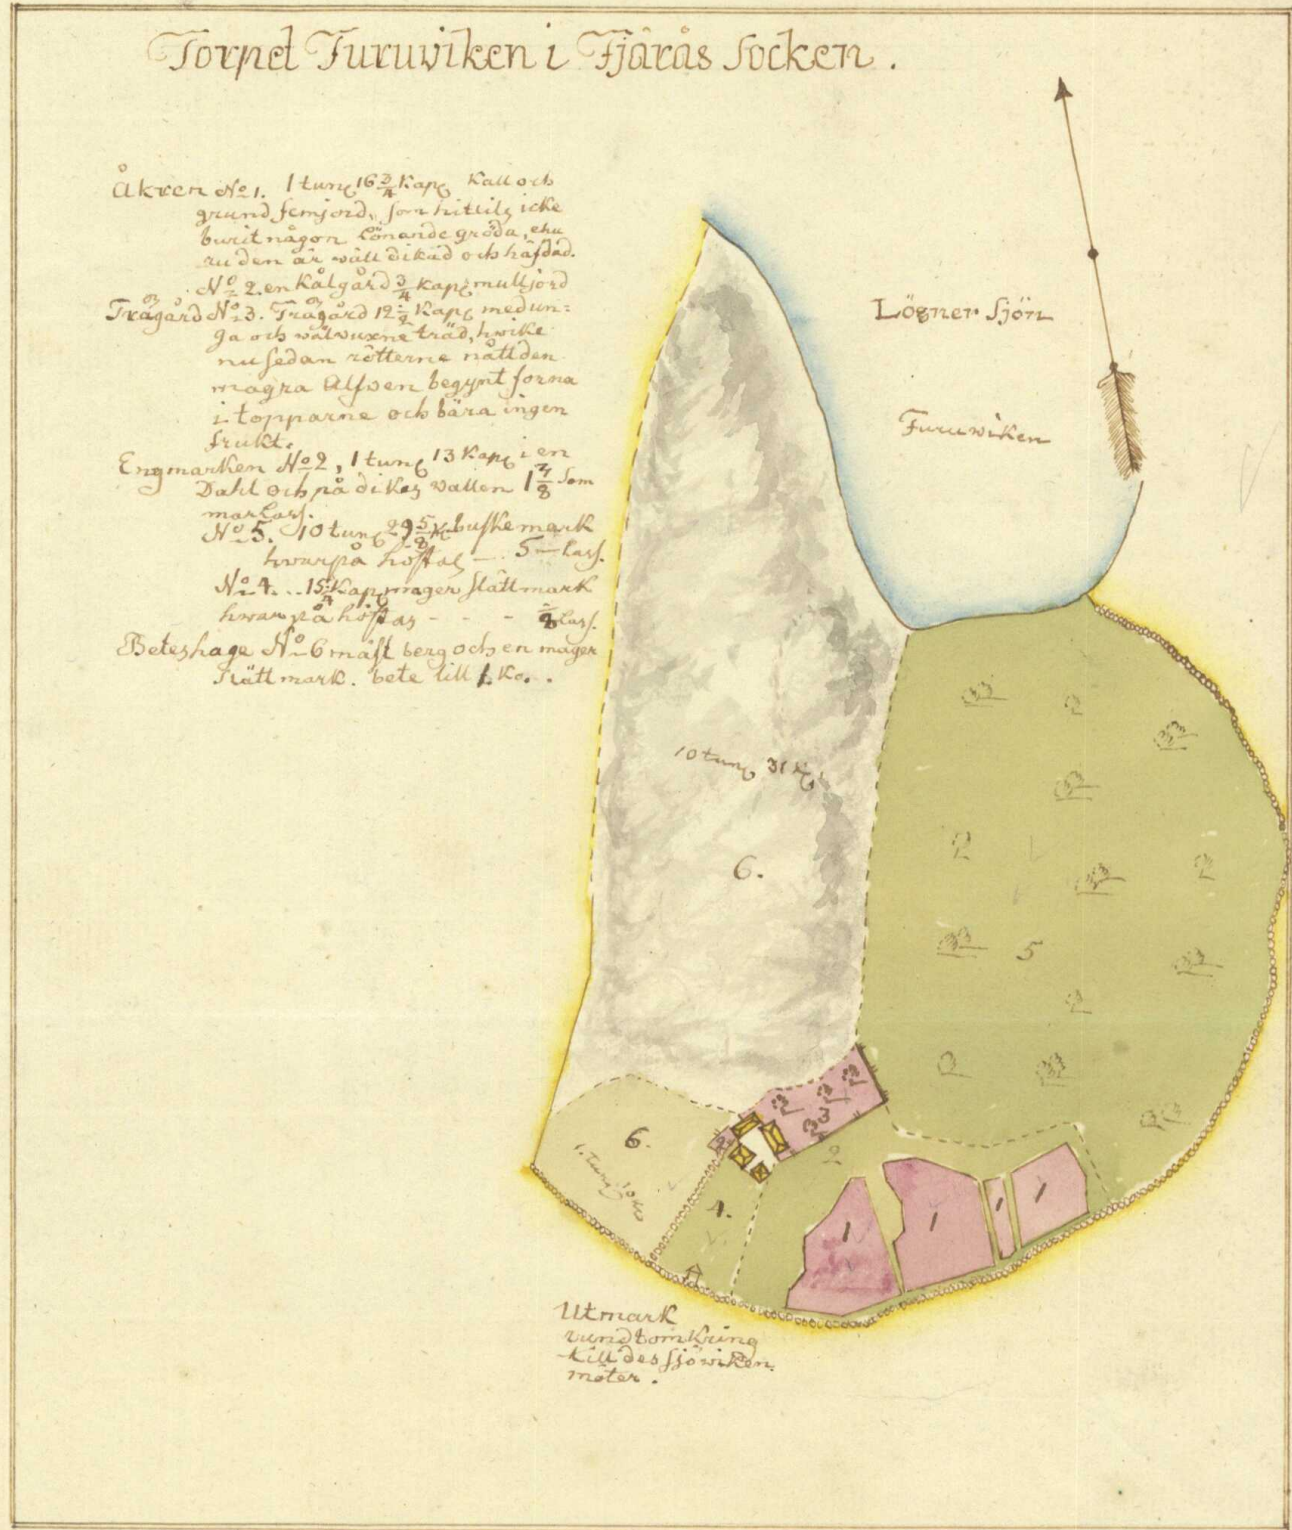 Torpet Furuwiken i Fjärås Socken.
Åkren No 1. 1 tunc 16 3/4 Kapc Kall och
grund femjord, som hittils icke
burit någon lönande gröda, ehu
ru den är wäll dikad och häfdad.
No 2. en Kålgård 3/4 Kapc mulljord
Trägård No 3. Trägård 12 1/2 Kapc med un=
ga och wälvuxne träd, hwilke
nu sedan rötterne nått den
magra Alfven begynt forna
i topparne och bära ingen
frukt.
Engmarken No 2, 1 tunc 13 Kapc i en
Dahl och på dikes wallen 1 7/8 som
mar lass.
No 5. 10 tunc 29 5/8 Kc buskemark
hwarpå höstas — 5 — lass.
No 4. .. 15 Kapc mager slåttmark
hwarpå höstas - - - lass.
Beteshage No 6 mäst berg och en mager
slätt mark. bete till 1. Ko..
Lögner Sjön
Furuwiken
10 tunc 31 Kc
6.
2
2
2
5
2
6.
1. tunc
2
3
2
4.
1
1
1
1
Utmark
rundt omkring
till des sjöwiken
möter.